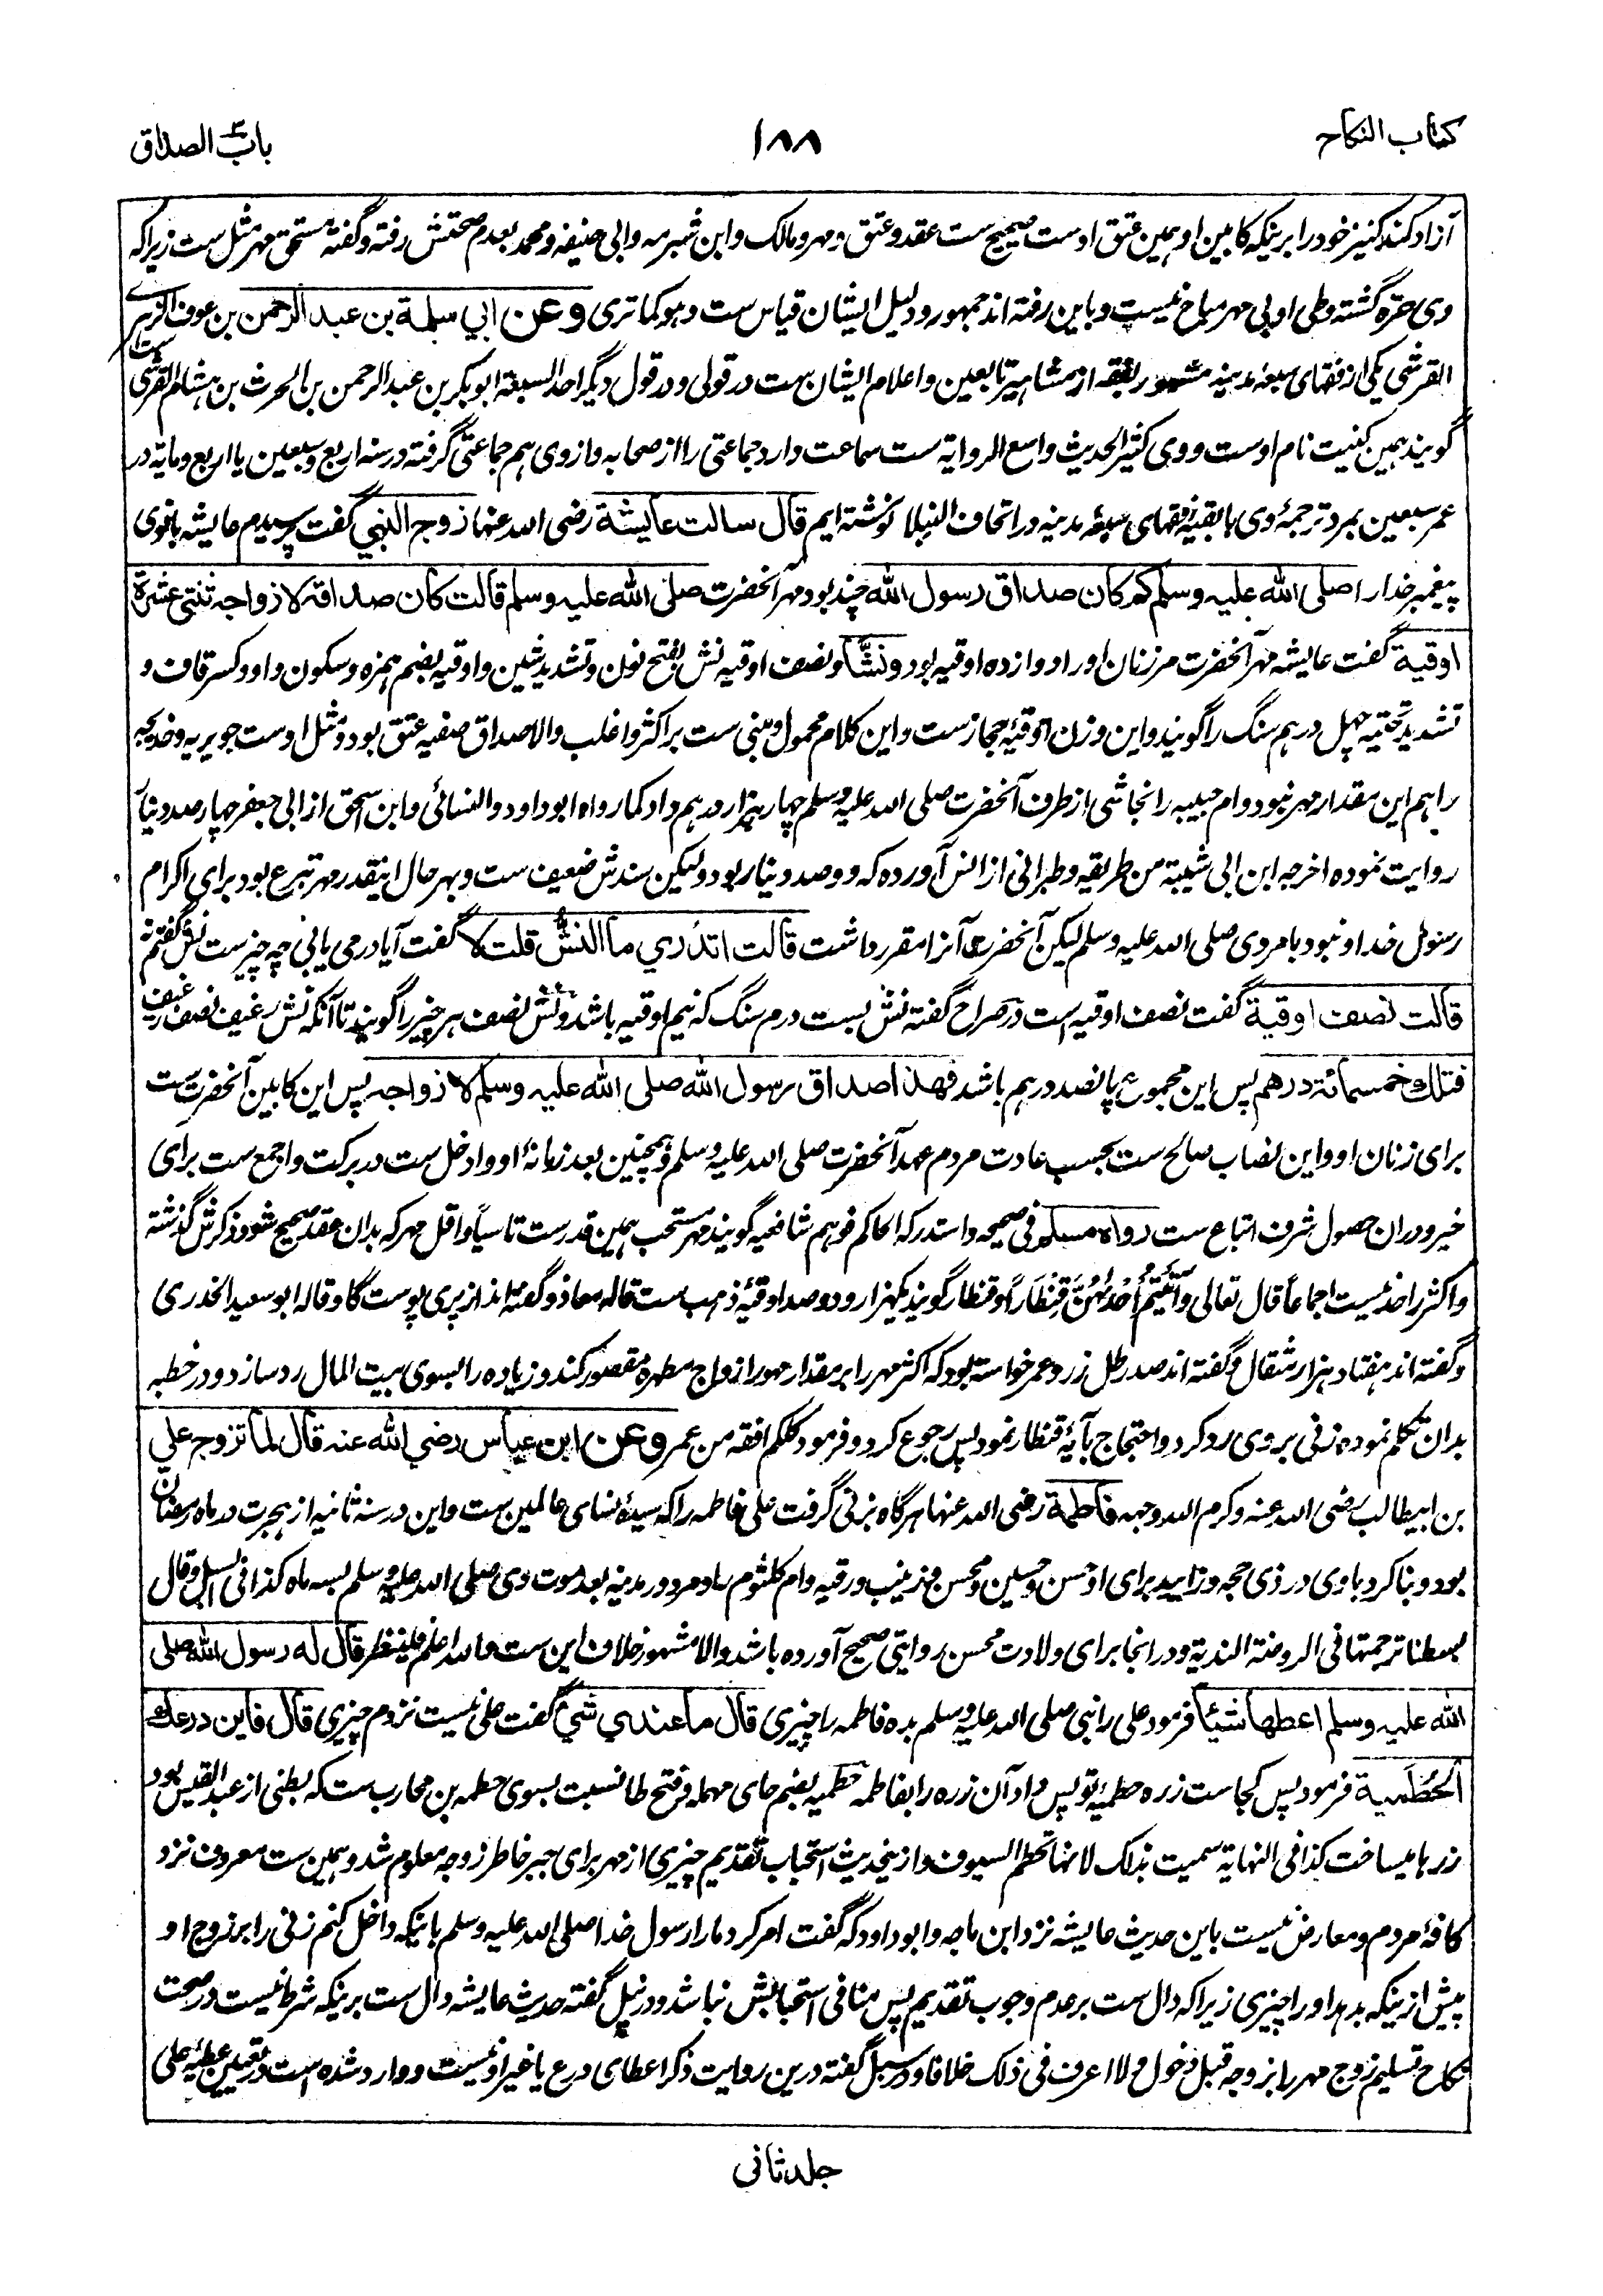 كتاب النكاح
١٨٨
باب الصداق
آزاد کند کنیز خود را برینکه کابین او همین عتق اوست صحیح ست عقد و عتق و مهر و مالک و ابن شبرمه و ابی حنیفه و محمد بعدم صحتش رفته و گفته مستحق مهر مثل ست زیراکه
وی حره گشته و طی او بی مهر مباح نیست و باین رفته اند جمهور و دلیل ایشان قیاس ست و هو کما تری وعن ابي سلمة بن عبد الرحمن بن عوف الزهري
القرشی یکی از فقهای سبعه مدینه مشهور بفقه از مشاهیر تابعین و اعلام ایشان ست در قولی و در قول دیگر احد السبعة ابو بکر بن عبد الرحمن بن الحرث بن هشام القرشی ست
گویند همین کنیت نام اوست و وی کثیر الحدیث واسع الروایة ست سماعت دارد جماعتی را از صحابه و از وی هم جماعتی گرفته در سنه اربع و سبعین یا اربع و مایة در
عمر سبعین بمرد ترجمهٔ وی با بقیهٔ فقهای سبعه مدینه در اتحاف النبلا نوشته ایم قال سالت عايشة رضی الله عنها زوج النبي گفت پرسیدم عایشه بانوی
پیغمبر خدا را صلى الله عليه وسلم کم كان صداق رسول الله چند بود مهر آنحضرت صلى الله عليه وسلم قالت كان صداقه لازواجه ثنتي عشرة
اوقية گفت عایشه مهر آنحضرت مر زنان او را دوازده اوقیه بود ونشا و نصف اوقیه نش بفتح نون و تشدید شین و اوقیه بضم همزه و سکون واو و کسر قاف و
تشدید تحتیه چهل درهم سنگ را گویند و این وزن اوقیهٔ حجازست و این کلام محمول و مبنی ست بر اکثر و اغلب والا صداق صفیه عتق بود و مثل اوست جویریه و خدیجه
را هم این مقدار مهر نبود و ام حبیبه را نجاشی از طرف آنحضرت صلی الله علیه وسلم چهار هزار درهم داد کما رواه ابو داود والنسائی و ابن اسحق از ابی جعفر چهار صد دینار
روایت نموده اخرجه ابن ابی شیبة من طریقه و طبرانی از انس آورده که دو صد دینار بود و لیکن سندش ضعیف ست و بهر حال اینقدر مهر تبرع بود برای اکرام
رسول خدا و نبود بامر وی صلی الله علیه وسلم لیکن آنحضرت آنرا مقرر داشت قالت اتدري ما النش قلت لا گفت آیا درمی یابی چه چیز ست نش گفتم نه
قالت نصف اوقية گفت نصف اوقیه است در صراح گفته نش بست درم سنگ که نیم اوقیه باشد و نش نصف هر چیز را گویند تا آنکه نش رغیف نصف رغیف
فتلك خمسمائة درهم پس این مجموع پانصد درهم باشد فهذا صداق رسول الله صلى الله عليه وسلم لازواجه پس این کابین آنحضرت ست
برای زنان او و این نصاب صالح ست بحسب عادت مردم عهد آنحضرت صلی الله علیه وسلم و همچنین بعد زمانهٔ او و ادخل ست در برکت و اجمع ست برای
خیر و دران حصول شرف اتباع ست رواه مسلم فی صحیحه واستدرکه الحاکم فوهم شافعیه گویند مهر مستحب همین قدرست تاسیاً و اقل مهر که بدان عقد صحیح شود ذکرش گذشته
و اکثر را حد نیست اجماعاً قال تعالی وَآتَيْتُمْ إِحْدَاهُنَّ قِنْطَارًا و قنطار گویند یکهزار و دو صد اوقیهٔ ذهب ست قاله معاذ و گفته اند از پری پوست گاو قاله ابو سعید الخدری
و گفته اند هفتاد هزار مثقال و گفته اند صد رطل زر و عمر خواسته بود که اکثر مهر را بر مقدار مهور ازواج مطهره مقصور کند و زیاده را بسوی بیت المال رد سازد و در خطبه
بدان تکلم نموده زنی بر وی رد کرد و احتجاج بآیهٔ قنطار نمود پس رجوع کرد و فرمود کلکم افقه من عمر وعن ابن عباس رضي الله عنه قال لما تزوج علي
بن ابیطالب رضی الله عنه و کرم الله وجهه فاطمة رضی الله عنها هرگاه بزنی گرفت علی فاطمه را که سیدهٔ نسای عالمین ست و این در سنه ثانیه از هجرت در ماه رمضان
بود و بنا کرد با وی در ذی حجه و زایید برای او حسن و حسین و محسن و زینب و رقیه و ام کلثوم را و مرد در مدینه بعد موت وی صلی الله علیه وسلم بسه ماه کذا فی السبل وقال
بسطنا ترجمتها فی الروضة الندیة و درانجا برای ولادت محسن روایتی صحیح آورده باشد والا مشهور خلاف این ست والله اعلم فلینظر قال له رسول الله صلى
الله عليه وسلم اعطها شيئا فرمود علی را نبی صلی الله علیه وسلم بده فاطمه را چیزی قال ما عندي شيء گفت علی نیست نزدم چیزی قال فاين درعك
الحُطَمية فرمود پس کجاست زره حطمیهٔ تو پس داد آن زره را بفاطمه حطمیه بضم حای مهمله و فتح طا نسبت بسوی حطمه بن محارب ست که بطنی از عبد القیس بود
زرها میساخت کذا فی النهایة سمیت بذلک لانها تحطم السیوف و ازینحدیث استحباب تقدیم چیزی از مهر برای جبر خاطر زوجه معلوم شد و همین ست معروف نزد
کافهٔ مردم و معارض نیست باین حدیث عایشه نزد ابن ماجه و ابو داود که گفت امر کرد مارا رسول خدا صلی الله علیه وسلم باینکه داخل کنم زنی را بر زوج او
پیش ازینکه بدهد او را چیزی زیراکه دال ست بر عدم وجوب تقدیم پس منافی استحبابش نباشد و در نیل گفته حدیث عایشه دال ست برینکه شرط نیست در صحت
نکاح تسلیم زوج مهر را بزوجه قبل دخول ولا اعرف فی ذلک خلافا و در سبل گفته درین روایت ذکر اعطای درع یا غیر او نیست و وارد شده است در تعیین عطیهٔ علی
جلد ثانی